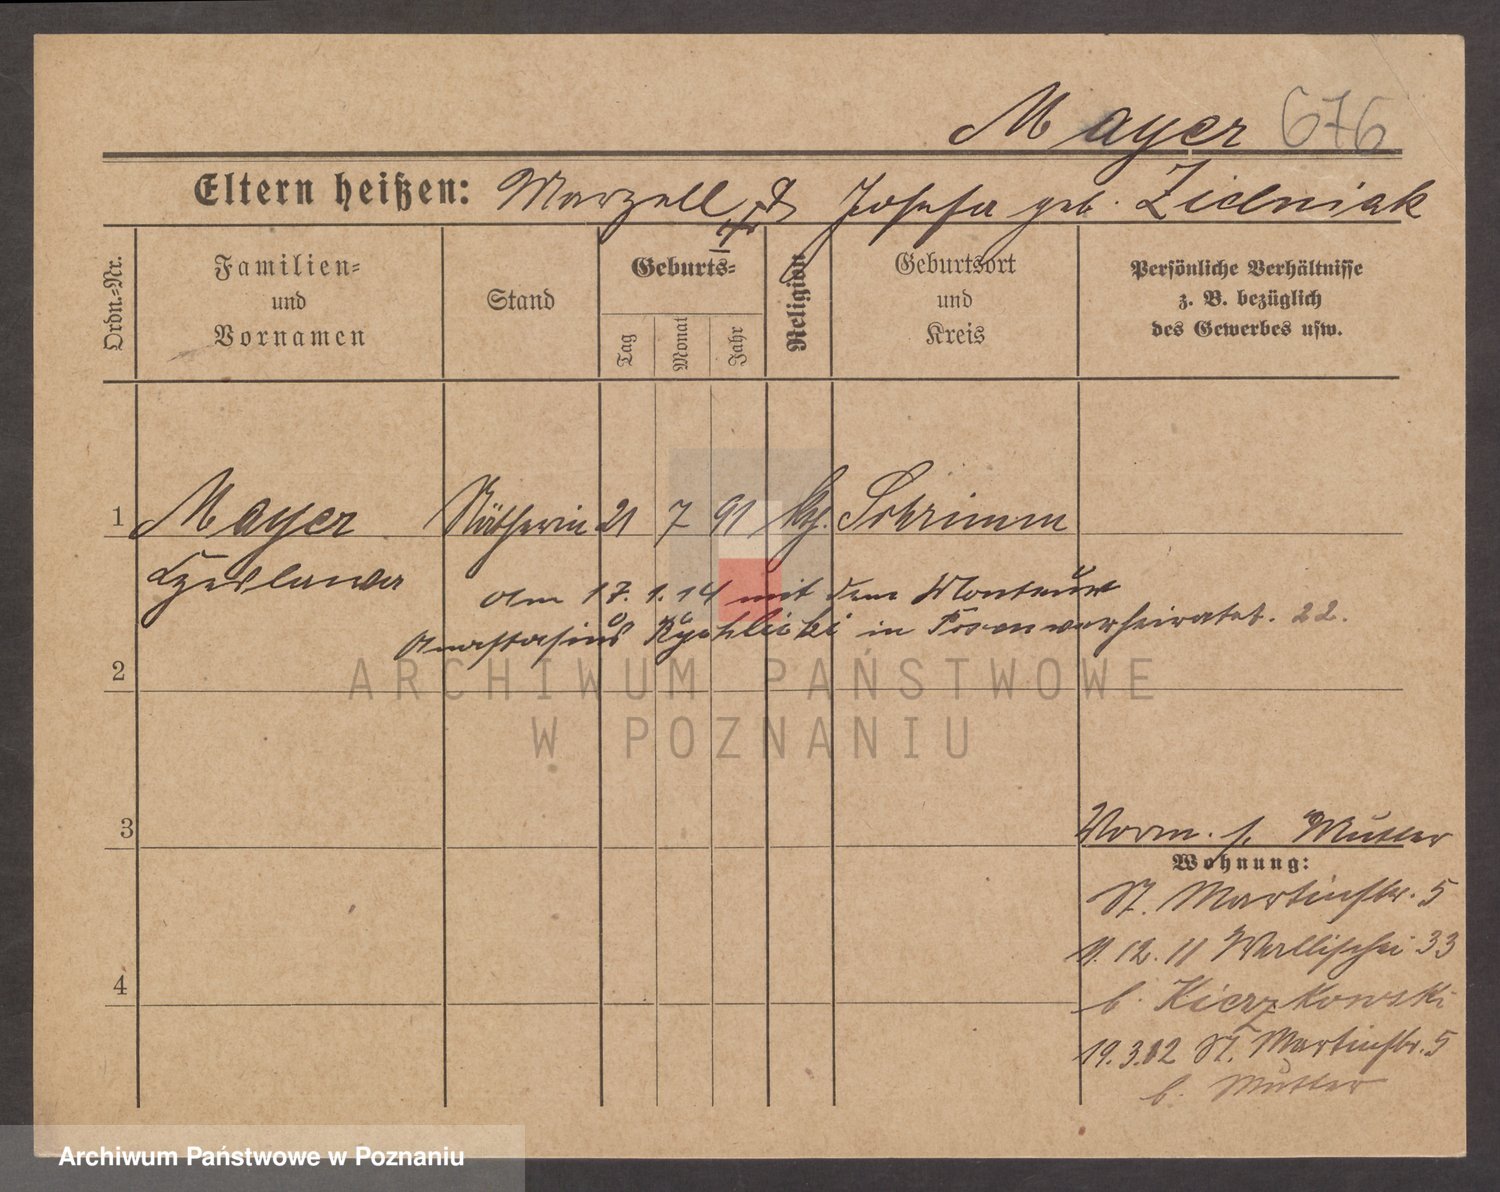 Mayer 676
Eltern heißen: Marzell & Josefa geb. Zielniak
Ordn.-Nr.
Familien-
und
Vornamen
Stand
Geburts-
Tag
Monat
Jahr
Religion
Geburtsort
und
Kreis
Persönliche Verhältnisse
z. B. bezüglich
des Gewerbes usw.
1 Mayer Nätherin 21 7 91 kth. Schrimm
Czeslawa
Am 17. 1. 14 mit dem Monteur
Anastasius Rychlicki in Posen verheiratet. 22.
2
3
Vorm. s. Mutter
Wohnung:
St. Martinstr. 5
11. 12. 11 Wallischei 33
4
b. Kierzkowski
19. 3. 12 St. Martinstr. 5
b. Mutter
ARCHIWUM PAŃSTWOWE
W POZNANIU
Archiwum Państwowe w Poznaniu